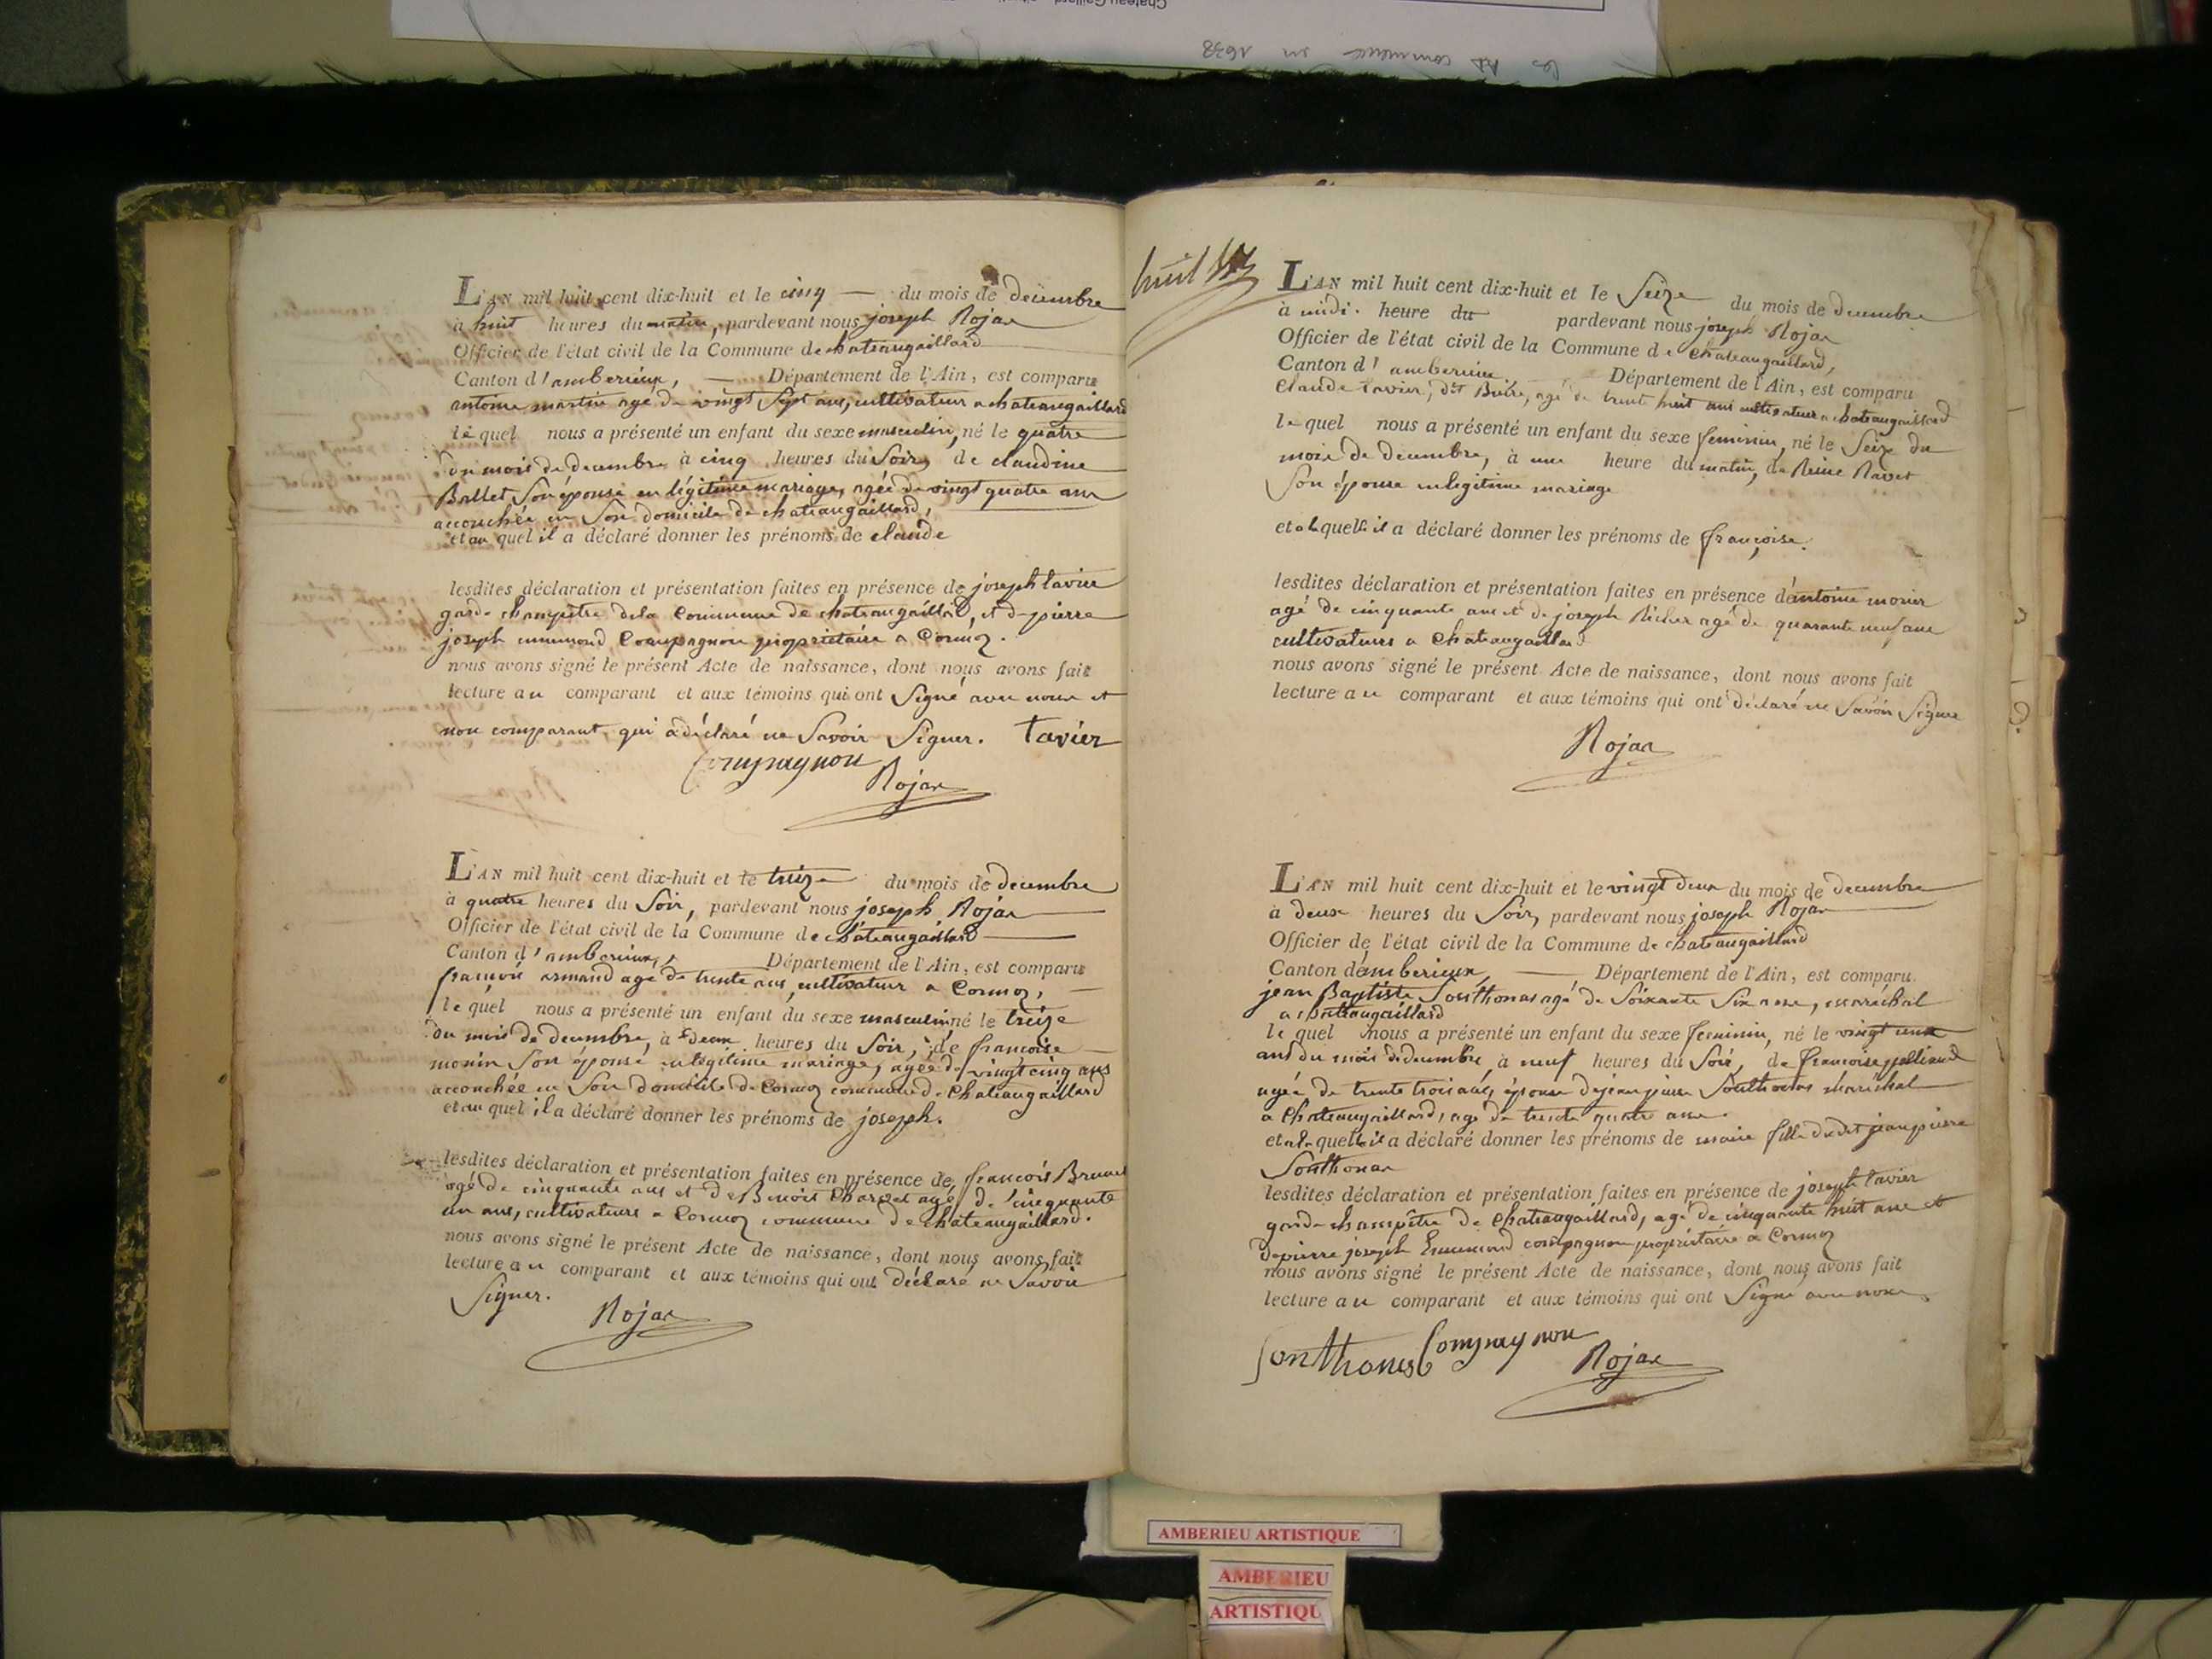 les commence en 1638
L'AN mil huit cent dix-huit et le cinq — du mois de decembre
à huit heures du matin, pardevant nous joseph Rojat
Officier de l'état civil de la Commune de chateaugaillard
Canton d'amberieux, — Département de l'Ain, est comparu
antoine martin agé de vingt Sept ans, cultivateur a chateaugaillard
le quel nous a présenté un enfant du sexe masculin, né le quatre
du mois de decembre à cinq heures du Soir, de claudine
Ballet Son épouse en légitime mariage, agée de vingt quatre ans
accouchée en Son domicile de chateaugaillard,
et au quel il a déclaré donner les prénoms de claude
lesdites déclaration et présentation faites en présence de joseph tavier
garde champetre de la Commune de chateaugaillard, et de pierre
joseph emmond Compagnon proprietaire a Cormoz.
nous avons signé le présent Acte de naissance, dont nous avons fait
lecture au comparant et aux témoins qui ont Signé avec nous et
non comparant, qui a déclaré ne Savoir Signer. Tavier
Compagnon
Rojat
L'AN mil huit cent dix-huit et le treize du mois de decembre
à quatre heures du Soir, pardevant nous joseph Rojat
Officier de l'état civil de la Commune de chateaugaillard
Canton d'amberieux, Département de l'Ain, est comparu
francois armand agé de trente ans, cultivateur a Cormoz,
le quel nous a présenté un enfant du sexe masculin né le treize
du mois de decembre, à deux heures du Soir, de francoise
monin Son épouse en legitime mariage, agée de vingt cinq ans
accouchée en Son domicile de Cormoz commune de Chateaugaillard
et au quel il a déclaré donner les prénoms de joseph.
lesdites déclaration et présentation faites en présence de francois Brunet
agé de cinquante ans et de Benoit Charvet agé de cinquante
un ans, cultivateurs a Cormoz commune de chateaugaillard.
nous avons signé le présent Acte de naissance, dont nous avons fait
lecture au comparant et aux témoins qui ont déclaré ne Savoir
Signer.
Rojat
huit
L'AN mil huit cent dix-huit et le Seize du mois de decembre
à midi. heure du pardevant nous joseph Rojat
Officier de l'état civil de la Commune de Chateaugaillard,
Canton d'amberieux Département de l'Ain, est comparu
Claude tavier, dit agé de trente huit ans cultivateur a chateaugaillard
le quel nous a présenté un enfant du sexe feminin, né le Seize du
mois de decembre, à une heure du matin, de Reine Ravet
Son épouse en legitime mariage
et a laquelle il a déclaré donner les prénoms de françoise.
lesdites déclaration et présentation faites en présence d'antoine monier
agé de cinquante ans et de joseph Richer agé de quarante neuf ans
cultivateurs a Chateaugaillard
nous avons signé le présent Acte de naissance, dont nous avons fait
lecture au comparant et aux témoins qui ont déclaré ne Savoir Signer
Rojat
L'AN mil huit cent dix-huit et le vingt deux du mois de decembre
à deux heures du Soir, pardevant nous joseph Rojat
Officier de l'état civil de la Commune de chateaugaillard
Canton d'amberieux, — Département de l'Ain, est comparu
jean Baptiste Sonthonas agé de Soixante Six ans, maréchal
a chateaugaillard
le quel nous a présenté un enfant du sexe feminin, né le vingt un
ans du mois de decembre, à neuf heures du Soir, de francoise
agée de trente trois ans, épouse de jean pierre Sonthonas maréchal
a Chateaugaillard, agé de trente quatre ans.
et a laquelle il a déclaré donner les prénoms de marie fille dudit jean pierre
Sonthonas
lesdites déclaration et présentation faites en présence de joseph tavier
garde champêtre de Chateaugaillard, agé de cinquante huit ans et
de pierre joseph Emmond compagnon proprietaire a Cormoz
nous avons signé le présent Acte de naissance, dont nous avons fait
lecture au comparant et aux témoins qui ont Signé avec nous.
Sonthonas Compagnon
Rojat
AMBERIEU ARTISTIQUE
AMBERIEU
ARTISTIQU